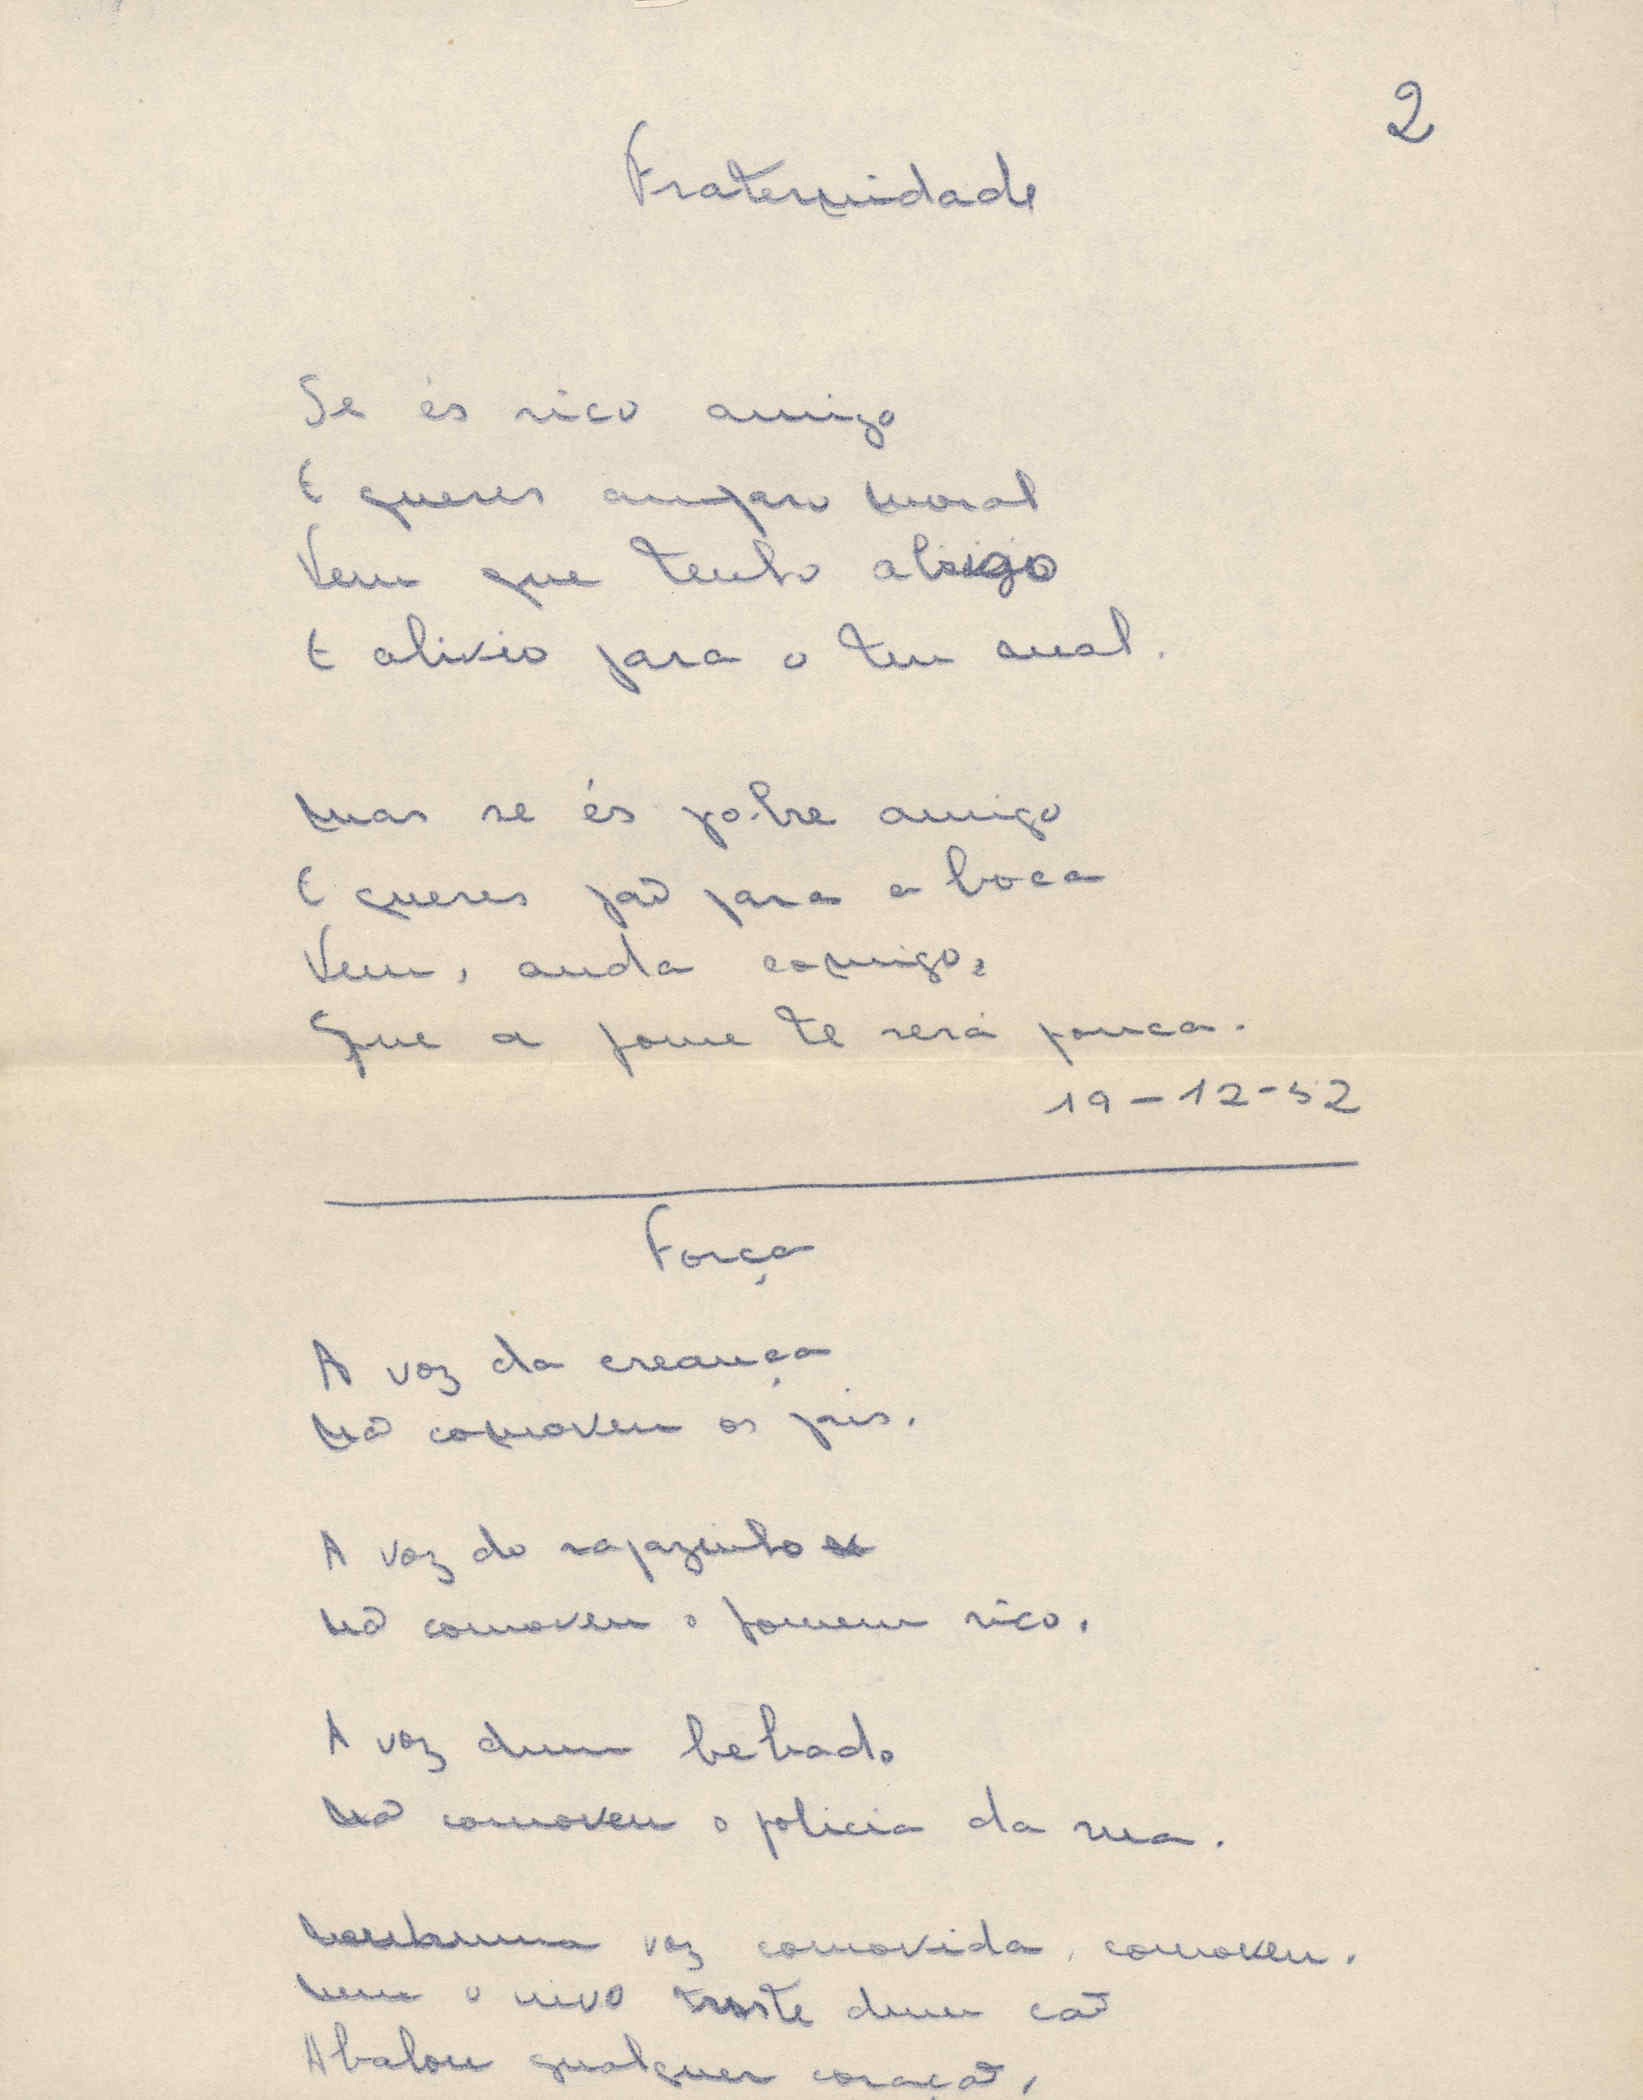 2
Fraternidade
Se és rico amigo
E queres amparo moral
Vem que tenho abrigo
E alivio para o teu mal.
Mas se és pobre amigo
E queres pão para a boca
Vem, anda comigo,
Que a fome te será pouca.
19-12-52
Força
A voz da creança
Não comoveu os pais.
A voz do rapazinho
Não comoveu o homem rico.
A voz dum bebado
Não comoveu o policia da rua.
Nenhuma voz comovida, comoveu.
Nem o uivo triste dum cão
Abalou qualquer coração,